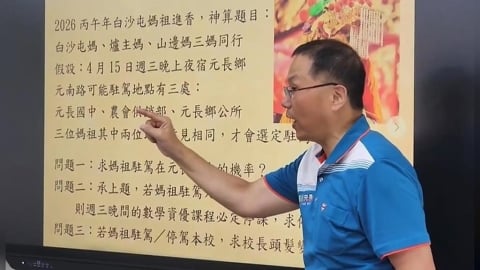 2026丙午年白沙屯媽祖進香，神算題目：
白沙屯媽、爐主媽、山邊媽三媽同行
假設：4月15日週三晚上夜宿元長鄉
元南路可能駐駕地點有三處：
元長國中、農會供銷部、元長鄉公所
三位媽祖其中兩位 見相同，才會選定駐
問題一：求媽祖駐駕在元 的機率？
問題二：承上題，若媽祖駐駕
則週三晚間的數學資優課程必定停課，求
問題三：若媽祖駐駕／停駕本校，求校長頭髮